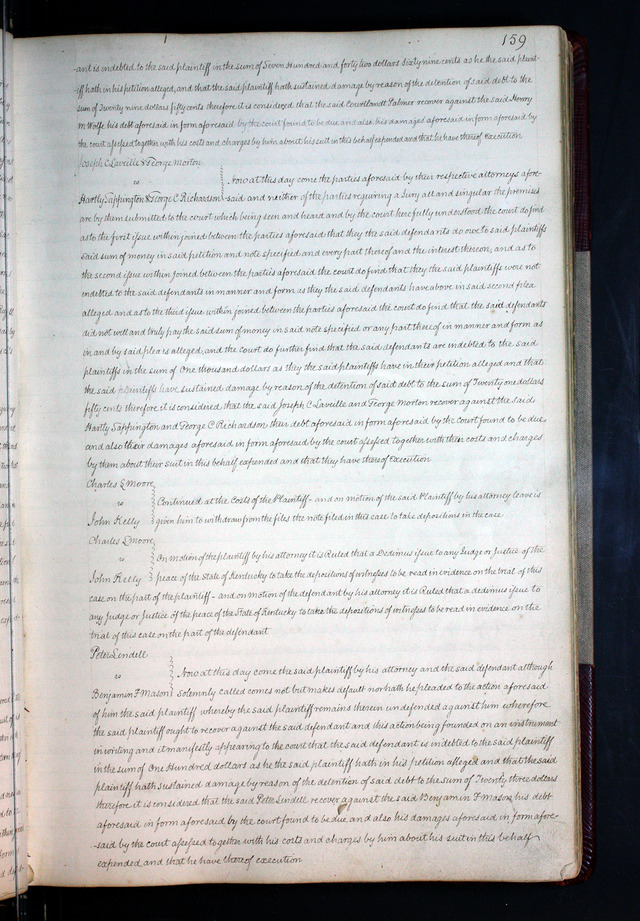 159
-ant is indebted to the said plaintiff in the sum of Seven Hundred and forty two dollars Sixty nine cents as he the said plaint-
-iff hath in his petition alleged, and that the said plaintiff hath sustained damage by reason of the detention of said debt to the
sum of Twenty nine dollars fifty cents therefore it is considered that the said Courtlandt Palmer recover against the said Henry
M Wolfe his debt aforesaid in form aforesaid by the court found to be due and also his damages aforesaid in form aforesaid by
the court assessed together with his costs and charges by him about his suit in this behalf expended and that he have thereof execution
Joseph C Laveille & George Morton
vs Now at this day come the parties aforesaid by their respective attorneys afore-
Hartly Sappington & George C Richardson -said and neither of the parties requiring a Jury all and singular the premises
are by them submitted to the court which being seen and heard and by the court here fully understood the court do find
as to the first issue within joined between the parties aforesaid that they the said defendants do owe to said plaintiffs
said sum of money in said petition and note specified and every part thereof and the interest thereon; and as to
the second issue within joined between the parties aforesaid the court do find that they the said plaintiffs were not
indebted to the said defendants in manner and form as they the said defendants have above in said second plea
alleged and as to the third issue within joined between the parties aforesaid the court do find that the said defendants
did not well and truly pay the said sum of money in said note specified or any part thereof in manner and form as
in and by said plea is alleged, and the court do further find that the said defendants are indebted to the said
plaintiffs in the sum of One thousand dollars as they the said plaintiffs have in their petition alleged and that
the said plaintiffs have sustained damage by reason of the detention of said debt to the sum of Twenty one dollars
fifty cents therefore it is considered that the said Joseph C Laveille and George Morton recover against the said
Hartly Sappington and George C Richardson their debt aforesaid in form aforesaid by the court found to be due
and also their damages aforesaid in form aforesaid by the court assessed together with their costs and charges
by them about their suit in this behalf expended and that they have thereof execution
Charles L Moore
vs Continued at the Costs of the Plaintiff - and on motion of the said Plaintiff by his attorney leave is
John Kelly given him to withdraw from the files the note filed in this case to take depositions in the case
Charles L Moore
vs On motion of the plaintiff by his attorney it is Ruled that a Dedimus issue to any Judge or Justice of the
John Kelly peace of the State of Kentucky to take the depositions of witnesses to be read in evidence on the trial of this
case on the part of the plaintiff - and on motion of the defendant by his attorney it is Ruled that a dedimus issue to
any Judge or Justice of the peace of the State of Kentucky to take the depositions of witnesses to be read in evidence on the
trial of this case on the part of the defendant
Peter Lindell
vs Now at this day come the said plaintiff by his attorney and the said defendant although
Benjamin F Mason solemnly called comes not but makes default nor hath he pleaded to the action aforesaid
of him the said plaintiff whereby the said plaintiff remains therein undefended against him wherefore
the said plaintiff ought to recover against the said defendant and this action being founded on an instrument
in writing and it manifestly appearing to the court that the said defendant is indebted to the said plaintiff
in the sum of One Hundred dollars as he the said plaintiff hath in his petition alleged and that the said
plaintiff hath sustained damage by reason of the detention of said debt to the sum of Twenty three dollars
therefore it is considered that the said Peter Lindell recover against the said Benjamin F Mason his debt
aforesaid in form aforesaid by the court found to be due and also his damages aforesaid in form afore-
-said by the court assessed together with his costs and charges by him about his suit in this behalf
expended and that he have thereof execution